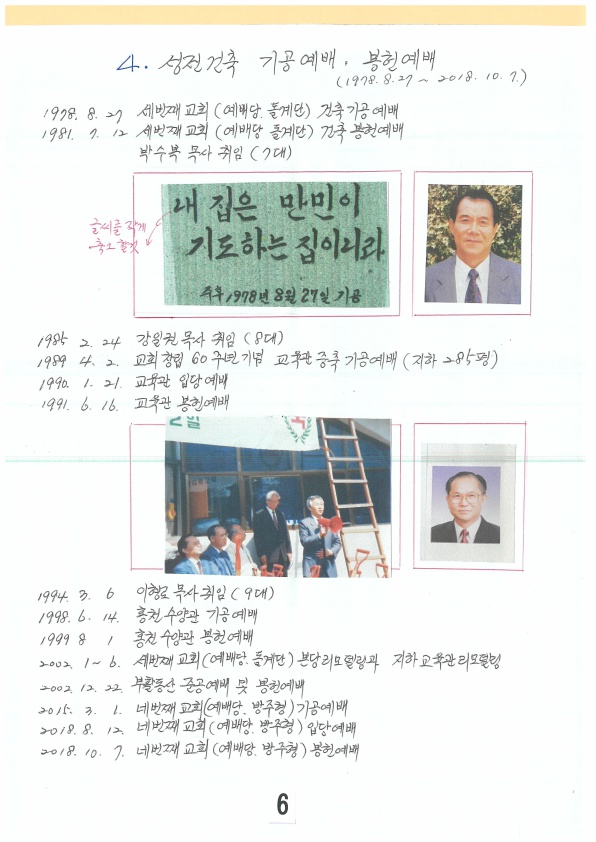 4. 성전건축 기공예배, 봉헌예배
(1978.8.27 ~ 2018.10.7.)
1978. 8. 27 세번째 교회 (예배당. 돌계단) 건축 기공예배
1981. 7. 12 세번째 교회 (예배당 돌계단) 건축 봉헌예배
박수복 목사 취임 (7대)
글씨를 작게
축소할것
내 집은 만민이
기도하는 집이니라
주후 1978년 8월 27일 기공
1985 2. 24 강일권 목사 취임 (8대)
1989 4. 2. 교회 창립 60주년기념 교육관 증축 기공예배 (지하 285평)
1990. 1. 21. 교육관 입당예배
1991. 6. 16. 교육관 봉헌예배
2일
1994. 3. 6 이형로 목사 취임 (9대)
1998. 6. 14. 홍천 수양관 기공예배
1999 8 1 홍천 수양관 봉헌예배
2002. 1~6. 세번째 교회(예배당.돌계단) 본당리모델링과 지하교육관리모델링
2002. 12. 22. 부활동산 준공예배 및 봉헌예배
2015. 3. 1. 네번째 교회(예배당. 방주형) 기공예배
2018. 8. 12. 네번째 교회 (예배당. 방주형) 입당예배
2018. 10. 7. 네번째 교회 (예배당. 방주형) 봉헌예배
6